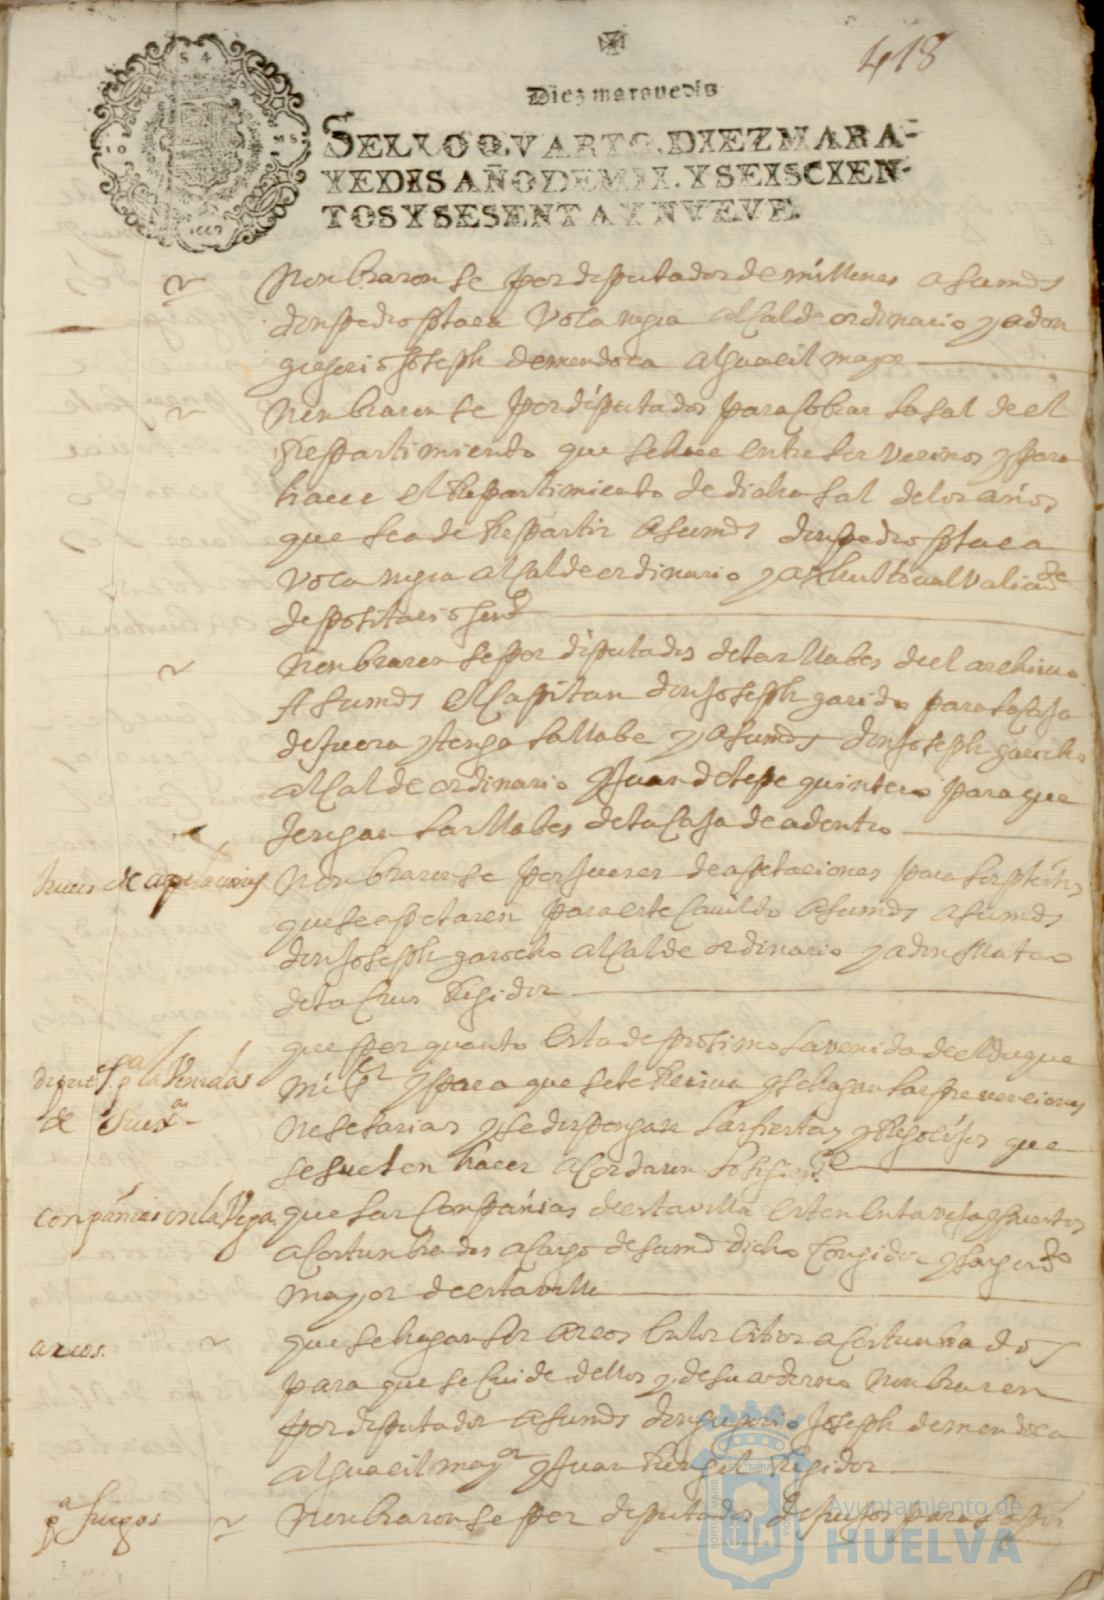 418
Diez marauedis
SELLO QVARTO, DIEZ MARA-
VEDIS AÑO DE MIL. Y SEISCIEN-
TOS Y SESENTA Y NVEVE.
1669
Nonbraronse por diputados de millones a sumds
don pedro ptaca Vocanegra alcalde ordinario y a don
gregorio Joseph de mendoca alguacil mayor
Nonbraron se por diputados para cobrar la sal de el
Repartimiento que se hace entre los vecinos y para
hacer el Repartimiento de dicha sal de los años
que sea de Repartir a sumds don pedro ptaca
Vocanegra alcalde ordinario y a
depositario
Nonbraron se por diputados de las llabes de el archiuo
A sumds el Capitan don Joseph garido para la Caja
de fuera y tenga la llabe y a sumds don Joseph garocho
alcalde ordinario y Juan de lepe quintero para que
tengan las llabes de la Caja de adentro
Jueces de apelaciones
Nonbraronse por Jueces de apelaciones para los pleitos
que se apelaren para este Cauildo a sumds a sumds
don Joseph garocho alcalde ordinario y a don Mateo
de la Crus Regidor
que por quanto esta de proximo la uenida de el duque
mi Sr y para que se le Reciua y se hagan las preuenciones
diput.s pa la Venida
de su exa
nesesarias y se dispongan las fiestas y Regocijos que
se suelen hacer acordaron lo siguiente
Conpañias en la Vega
que las Conpañias de esta villa esten en la vega y puestos
acostunbrados a cargo de sumd dicho Coregidor y sargento
mayor de esta villa
arcos.
que se hagan los arcos en los citios acostunbrados y
para que se Cuide dellos y de su adorno nonbraron
por diputados a sumds don gregorio Joseph de mendoca
alguacil mayor y Juan Rangel Regidor
pa fuegos
Nonbraronse por diputados de fuegos para
Ayuntamiento de
HUELVA